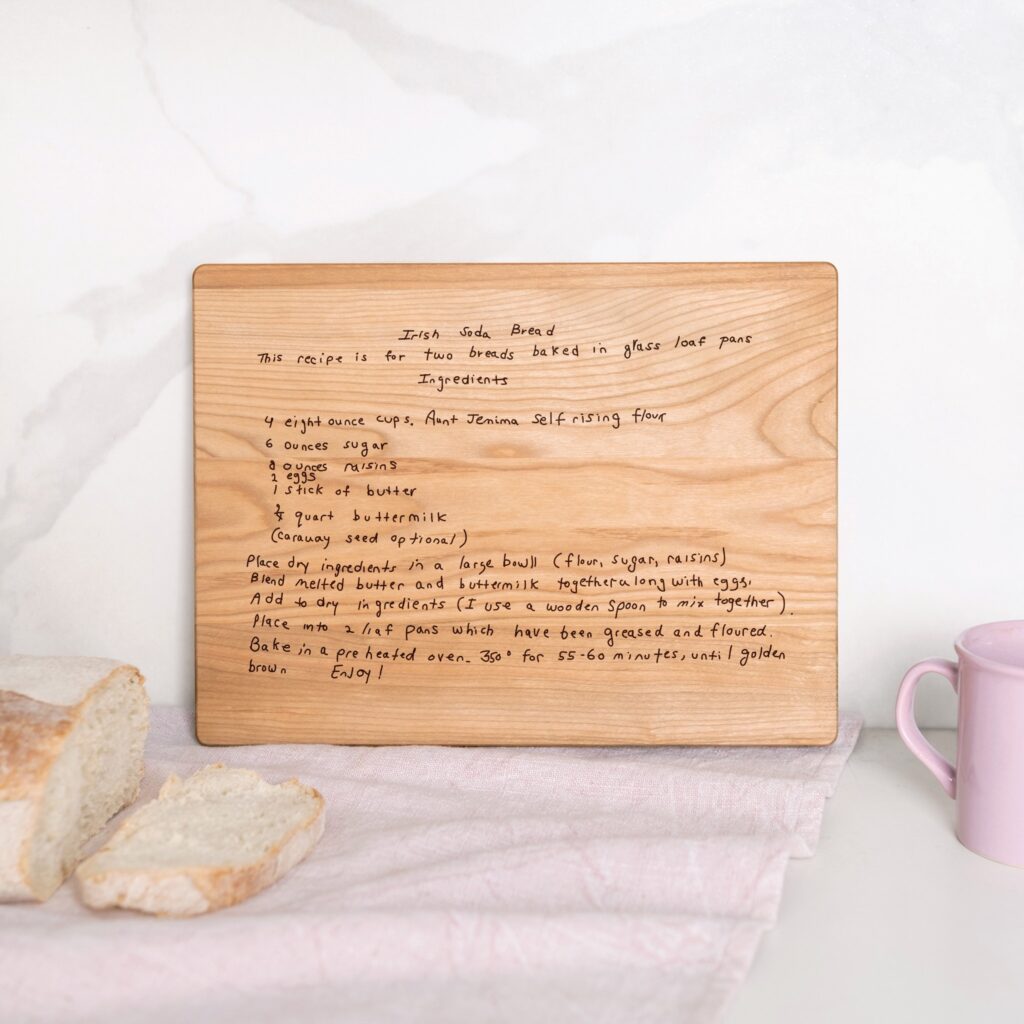 Irish Soda Bread
This recipe is for two breads baked in glass loaf pans
Ingredients
4 eight ounce cups. Aunt Jenima Self rising flour
6 ounces sugar
8 ounces raisins
2 eggs
1 stick of butter
quart buttermilk
(caraway seed optional)
Place dry ingredients in a large bowll (flour, sugar, raisins)
Blend melted butter and buttermilk together along with eggs.
Add to dry ingredients (I use a wooden spoon to mix together).
Place into 2 loaf pans which have been greased and floured.
Bake in a pre heated oven. 350° for 55-60 minutes, until golden
brown Enjoy!